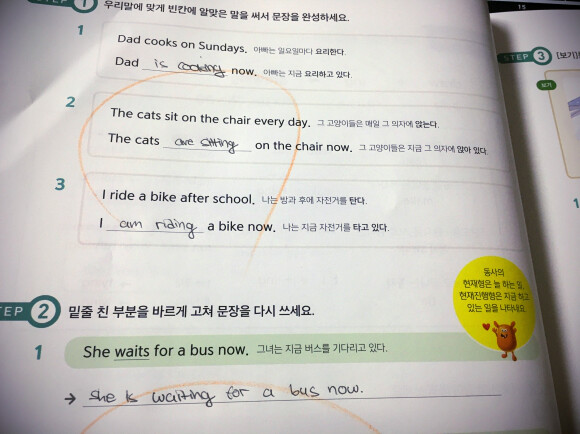 1 우리말에 맞게 빈칸에 알맞은 말을 써서 문장을 완성하세요.
1
Dad cooks on Sundays. 아빠는 일요일마다 요리한다.
Dad is cooking now. 아빠는 지금 요리하고 있다.
2
The cats sit on the chair every day. 그 고양이들은 매일 그 의자에 앉는다.
The cats are sitting on the chair now. 그 고양이들은 지금 그 의자에 앉아 있다.
3
I ride a bike after school. 나는 방과 후에 자전거를 탄다.
I am riding a bike now. 나는 지금 자전거를 타고 있다.
동사의
현재형은 늘 하는 일,
현재진행형은 지금 하고
있는 일을 나타내요.
STEP 2 밑줄 친 부분을 바르게 고쳐 문장을 다시 쓰세요.
1 She waits for a bus now. 그녀는 지금 버스를 기다리고 있다.
→ she is waiting for a bus now.
15
STEP 3 [보기]
보기
1